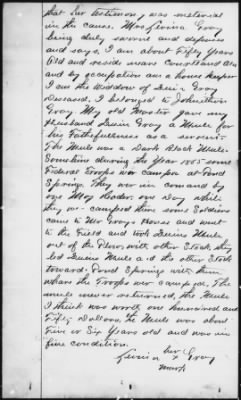 that her testimony was material
in the cause. Mrs Levina Gray
being duly sworne and deposes
and says, I am about Fifty Years
Old and reside near Courtland Ala
and by occupation am a house keeper
I am the Widdow of Gray
Deceased. I belonged to Johnathan
Gray My old Master gave my
husband Gray a Mule for
his Faithfulness as a servant.
The Mule was a Dark Black Mule.
Sometime during the Year 1865 some
Federal Troops war camped at Pond
Springs. They wer in comand by
one Maj day while
they wer camped there some Soldiers
came to Mr Grays House and went
to the Field and took Mule
out of the Plow with other Stock they
led Mule and the other Stock
toward Pond Springs with them
whare the Troops wer camped. The
mule never returned, the Mule
I think was worth one hundred and
Fifty Dollars, the Mule was about
Five or Six Years old and was in
fine condition.
her
Levina x Gray
mark